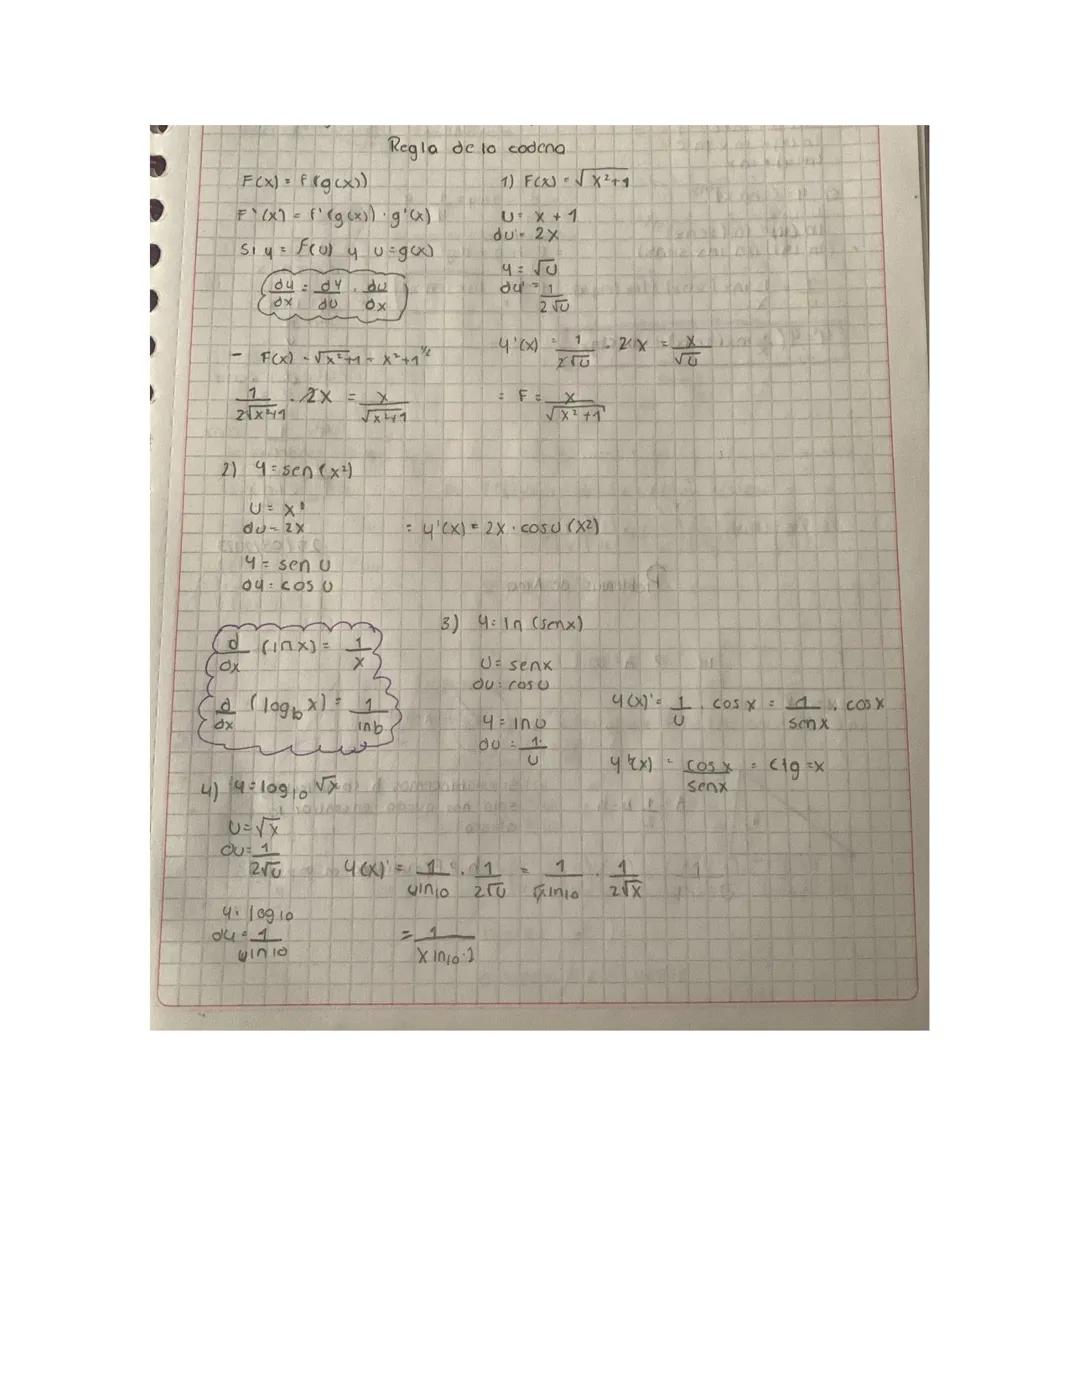 Regla de la cadena
F(x) = f(g(x))
F'(x) = f'(g(x)) · g'(x)
Si y = f(u) y u = g(x)
dy/dx = dy/du · du/dx
- F(x) = √x²+1 = x²+1 ^1/2
1/2√x²+1 · 2x = x/√x²+1
1) F(x) = √x²+1
U = x + 1
du = 2x
y = √u
dy' = 1/2√u
y'(x) = 1/2√u · 2x = x/√u
= F = x/√x²+1
2) y = sen(x²)
U = x²
du = 2x
y = sen u
dy = cos u
= y'(x) = 2x · cos u (x2)
d/dx (ln x) = 1/x
d/dx (log_b x) = 1/ln b
3) y = ln (senx)
U = senx
du = cos u
y = ln u
du = 1/u
y(x)' = 1/u · cos x = 1/senx · cos x
y'(x) = cos x/senx = ctg =x
4) y = log10 √x
U = √x
du = 1/2√u
y = log 10
dy = 1/u ln 10
y(x)' = 1/u ln10 · 1/2√u = 1/√x ln10 · 1/2√x
= 1/x ln10·2